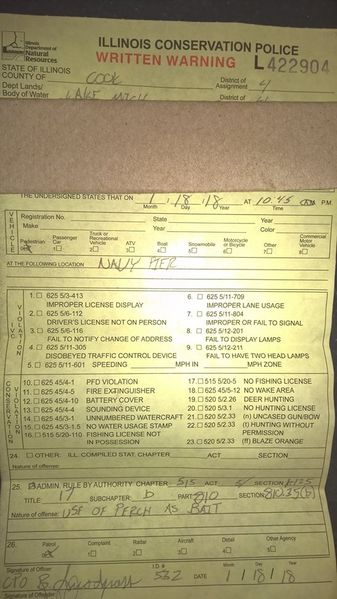 ILLINOIS CONSERVATION POLICE
WRITTEN WARNING
L422904
Illinois Department of Natural Resources
STATE OF ILLINOIS
COUNTY OF COOK
District of Assignment 4
Dept Lands/
Body of Water LAKE MICH
District of
THE UNDERSIGNED STATES THAT ON 1 /8 /8 AT 10:45 AM P.M.
Month Day Year Time
VEHICLE
Registration No. State Year
Make Year Color
Pedestrian Passenger Car Truck or Recreational Vehicle ATV Boat Snowmobile Motorcycle or Bicycle Other Commercial Motor Vehicle
1 2 3 4 5 6 7 8
AT THE FOLLOWING LOCATION NAVY PIER
IVC VIOLATION
1. 625 5/3-413
IMPROPER LICENSE DISPLAY
2. 625 5/6-112
DRIVER'S LICENSE NOT ON PERSON
3. 625 5/6-116
FAIL TO NOTIFY CHANGE OF ADDRESS
4. 625 5/11-305
DISOBEYED TRAFFIC CONTROL DEVICE
5. 625 5/11-601 SPEEDING MPH IN MPH ZONE
6. 625 5/11-709
IMPROPER LANE USAGE
7. 625 5/11-804
IMPROPER OR FAIL TO SIGNAL
8. 625 5/12-201
FAIL TO DISPLAY LAMPS
9. 625 5/12-211
FAIL TO HAVE TWO HEAD LAMPS
CONSERVATION VIOLATION
10. 625 45/4-1 PFD VIOLATION
11. 625 45/4-5 FIRE EXTINGUISHER
12. 625 45/4-10 BATTERY COVER
13. 625 45/4-4 SOUNDING DEVICE
14. 625 45/3-1 UNNUMBERED WATERCRAFT
15. 625 45/3-1.5 NO WATER USAGE STAMP
16. 515 5/20-110 FISHING LICENSE NOT IN POSSESSION
17. 515 5/20-5 NO FISHING LICENSE
18. 625 45/5-12 NO WAKE AREA
19. 520 5/2.26 DEER HUNTING
20. 520 5/3.1 NO HUNTING LICENSE
21. 520 5/2.33 (n) UNCASED GUN/BOW
22. 520 5/2.33 (t) HUNTING WITHOUT PERMISSION
23. 520 5/2.33 (ff) BLAZE ORANGE
24. OTHER: ILL COMPILED STAT. CHAPTER ACT SECTION
Nature of offense:
25. ADMIN. RULE BY AUTHORITY CHAPTER 515 ACT 5 SECTION
TITLE: 17 SUBCHAPTER: b PART: 810 SECTION:
Nature of offense: USE OF PERCH AS BAIT
26. Patrol Complaint Radar Aircraft Detail Other Agency
1 2 3 4 5
Signature of Officer I.D. # 532 DATE 1 /8 /18
Month Day Year
CPO
Signature of Offender